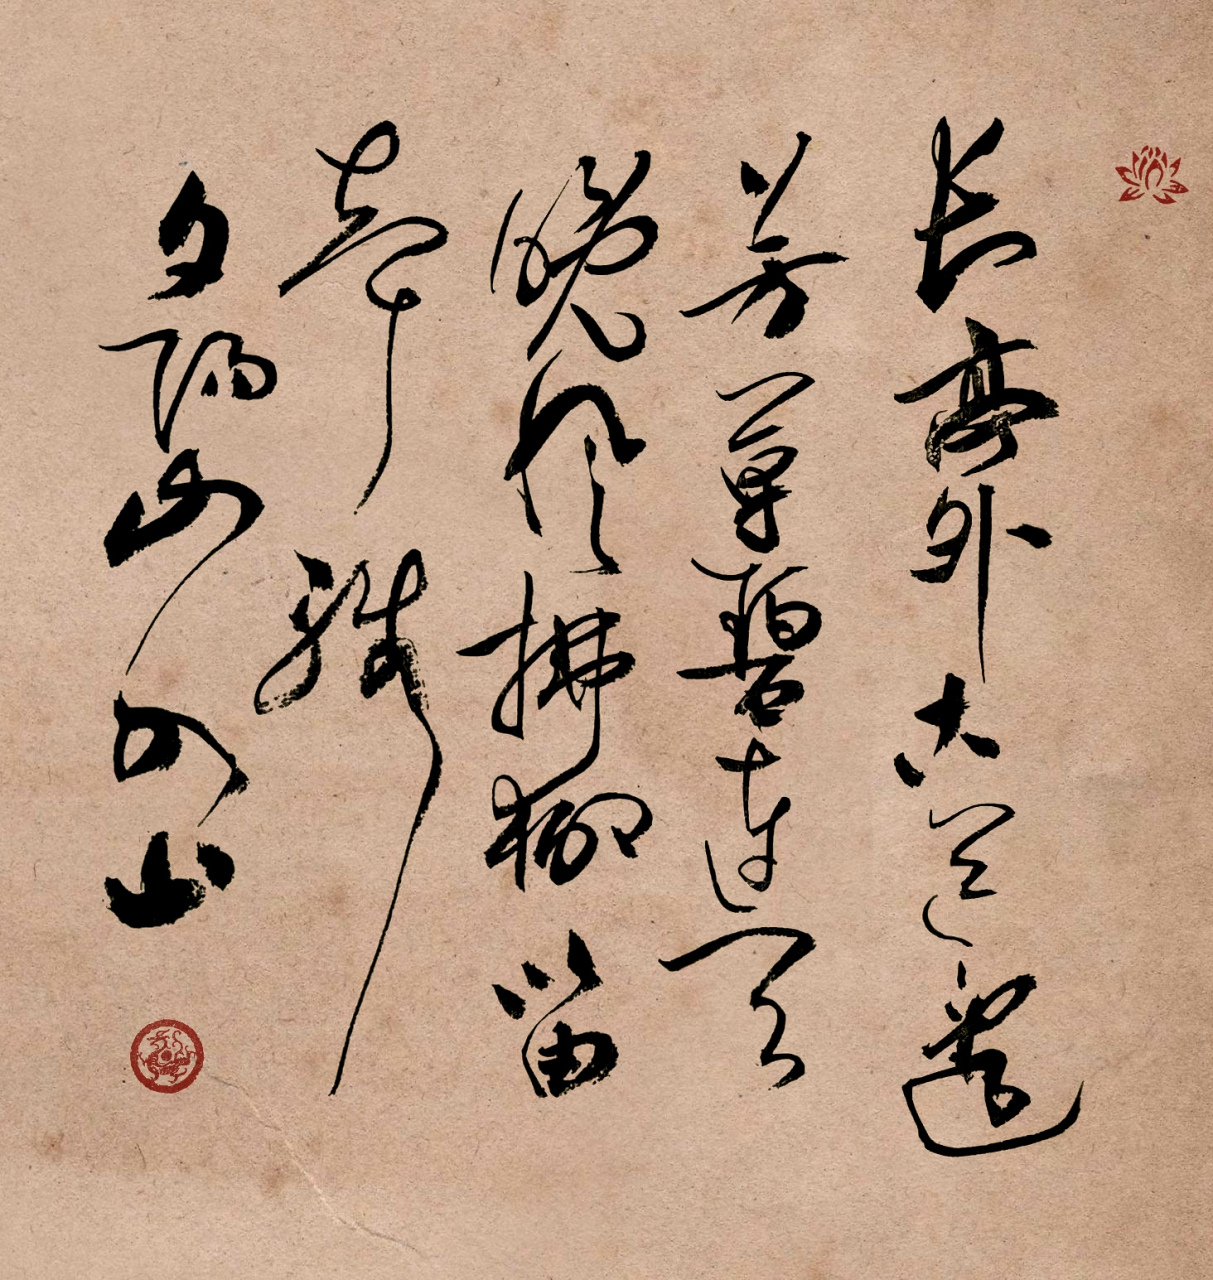 长亭外古道边
芳草碧连天
晚风拂柳笛
声残
夕阳山外山